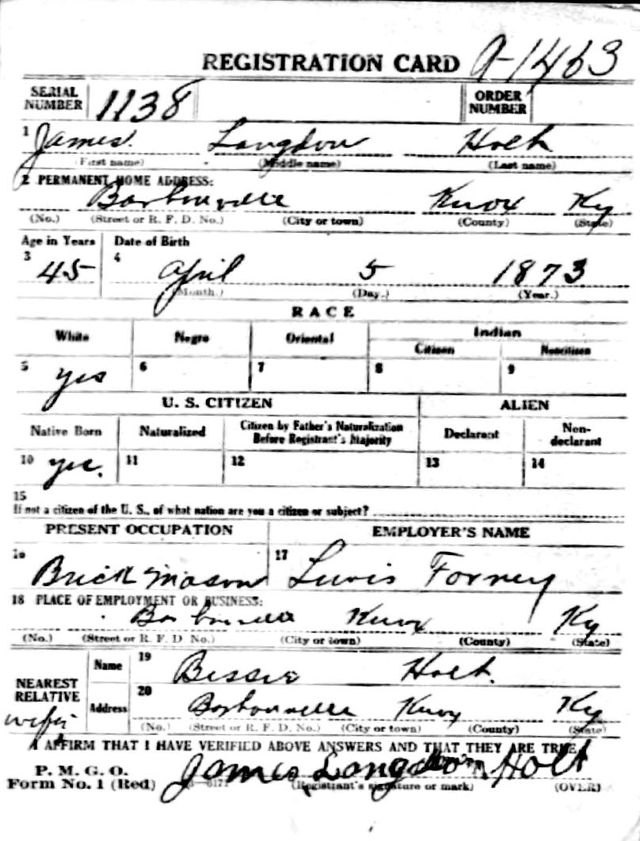 REGISTRATION CARD A-1463
SERIAL NUMBER 1138 ORDER NUMBER
1 James. Langdon Holt
(First name) (Middle name) (Last name)
2 PERMANENT HOME ADDRESS:
Barbourville Knox Ky
(No.) (Street or R. F. D. No.) (City or town) (County) (State)
Age in Years Date of Birth
3 45 4 April 5 1873
(Month.) (Day.) (Year.)
RACE
White Negro Oriental Indian
Citizen Noncitizen
5 yes 6 7 8 9
U. S. CITIZEN ALIEN
Native Born Naturalized Citizen by Father's Naturalization Before Registrant's Majority Declarant Non-declarant
10 yes. 11 12 13 14
15
If not a citizen of the U. S., of what nation are you a citizen or subject?
PRESENT OCCUPATION EMPLOYER'S NAME
16 Brick Mason 17 Lewis Forney
18 PLACE OF EMPLOYMENT OR BUSINESS:
Barbourville Knox Ky
(No.) (Street or R. F. D. No.) (City or town) (County) (State)
NEAREST RELATIVE wife Name 19 Bessie Holt.
Address 20 Barbourville Knox Ky
(No.) (Street or R. F. D. No.) (City or town) (County) (State)
I AFFIRM THAT I HAVE VERIFIED ABOVE ANSWERS AND THAT THEY ARE TRUE
P. M. G. O.
Form No. 1 (Red) James Langdon Holt
(Registrant's signature or mark) (OVER)